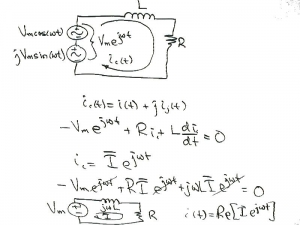 L
Vmcos(ωt)
jVmsin(ωt)
Vm e^jωt
R
i_c(t)
i_c(t) = i(t) + j i_j(t)
-Vm e^jωt + R i_c + L di_c/dt = 0
i_c = Ī e^jωt
-Vm e^jωt + R Ī e^jωt + jωL Ī e^jωt = 0
jωL
Vm
Ī
R
i(t) = Re[Ī e^jωt]